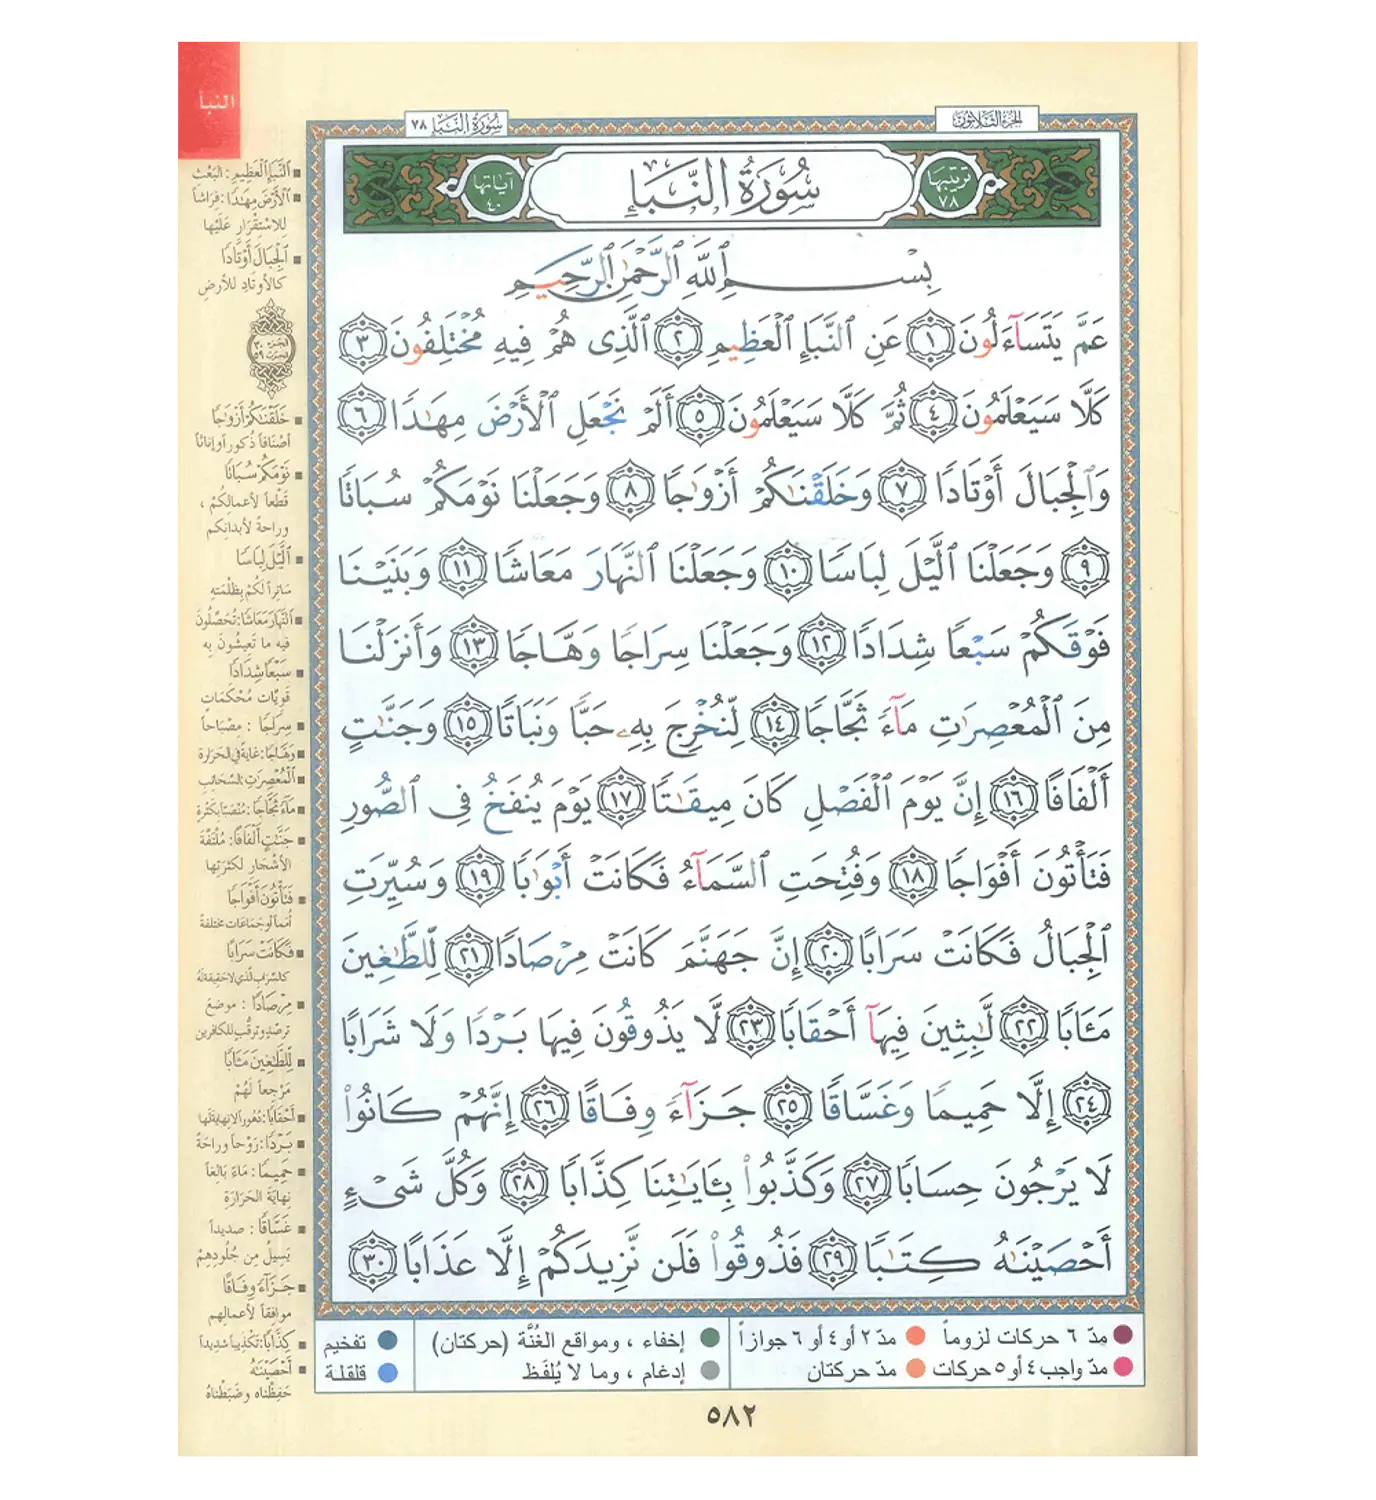 النبأ
الجزء الثلاثون
سُورَةُ النَّبَإِ ٧٨
ترتيبها ٧٨
سُورَةُ النَّبَإِ
آياتها ٤٠
بِسْمِ ٱللَّهِ ٱلرَّحْمَٰنِ ٱلرَّحِيمِ
عَمَّ يَتَسَآءَلُونَ ١ عَنِ ٱلنَّبَإِ ٱلْعَظِيمِ ٢ ٱلَّذِى هُمْ فِيهِ مُخْتَلِفُونَ ٣
كَلَّا سَيَعْلَمُونَ ٤ ثُمَّ كَلَّا سَيَعْلَمُونَ ٥ أَلَمْ نَجْعَلِ ٱلْأَرْضَ مِهَٰدًا ٦
وَٱلْجِبَالَ أَوْتَادًا ٧ وَخَلَقْنَٰكُمْ أَزْوَٰجًا ٨ وَجَعَلْنَا نَوْمَكُمْ سُبَاتًا
٩ وَجَعَلْنَا ٱلَّيْلَ لِبَاسًا ١٠ وَجَعَلْنَا ٱلنَّهَارَ مَعَاشًا ١١ وَبَنَيْنَا
فَوْقَكُمْ سَبْعًا شِدَادًا ١٢ وَجَعَلْنَا سِرَاجًا وَهَّاجًا ١٣ وَأَنزَلْنَا
مِنَ ٱلْمُعْصِرَٰتِ مَآءً ثَجَّاجًا ١٤ لِّنُخْرِجَ بِهِۦ حَبًّا وَنَبَاتًا ١٥ وَجَنَّٰتٍ
أَلْفَافًا ١٦ إِنَّ يَوْمَ ٱلْفَصْلِ كَانَ مِيقَٰتًا ١٧ يَوْمَ يُنفَخُ فِى ٱلصُّورِ
فَتَأْتُونَ أَفْوَاجًا ١٨ وَفُتِحَتِ ٱلسَّمَآءُ فَكَانَتْ أَبْوَٰبًا ١٩ وَسُيِّرَتِ
ٱلْجِبَالُ فَكَانَتْ سَرَابًا ٢٠ إِنَّ جَهَنَّمَ كَانَتْ مِرْصَادًا ٢١ لِّلطَّٰغِينَ
مَـَٔابًا ٢٢ لَّٰبِثِينَ فِيهَآ أَحْقَابًا ٢٣ لَّا يَذُوقُونَ فِيهَا بَرْدًا وَلَا شَرَابًا
٢٤ إِلَّا حَمِيمًا وَغَسَّاقًا ٢٥ جَزَآءً وِفَاقًا ٢٦ إِنَّهُمْ كَانُوا۟
لَا يَرْجُونَ حِسَابًا ٢٧ وَكَذَّبُوا۟ بِـَٔايَٰتِنَا كِذَّابًا ٢٨ وَكُلَّ شَىْءٍ
أَحْصَيْنَٰهُ كِتَٰبًا ٢٩ فَذُوقُوا۟ فَلَن نَّزِيدَكُمْ إِلَّا عَذَابًا ٣٠
النَّبَإِ الْعَظِيمِ : البَعْث
الْأَرْضَ مِهَٰدًا : فِرَاشاً
لِلاسْتِقْرَارِ عَلَيْها
الْجِبَالَ أَوْتَادًا
كالأوتَادِ للأرضِ
الجزء ٣٠
الحزب ٥٩
خَلَقْنَٰكُمْ أَزْوَٰجًا
أصْنَافاً ذُكوراً وإناثاً
نَوْمَكُمْ سُبَاتًا
قَطْعاً لأعمالِكُمْ ،
وراحةً لأبدانِكم
الَّيْلَ لِبَاسًا
سَاتِراً لَكُمْ بِظُلْمَتِهِ
النَّهَارَ مَعَاشًا : تُحَصِّلُونَ
فيه ما تَعِيشُونَ بِهِ
سَبْعًا شِدَادًا
قَوِيَّاتٍ مُحْكَمَاتٍ
سِرَاجًا : مِصْبَاحاً
وَهَّاجًا : غايةً في الحَرَارة
الْمُعْصِرَٰتِ : السَّحَائِبِ
مَآءً ثَجَّاجًا : مُنْصَبّاً بِكَثْرة
جَنَّٰتٍ أَلْفَافًا : مُلْتَفَّةَ
الأشْجَارِ لكثرَتِها
فَتَأْتُونَ أَفْوَاجًا
أُمَماً أو جَمَاعَات مختلفةً
فَكَانَتْ سَرَابًا
كالسَّرابِ الَّذي لا حَقِيقةَ لَهُ
مِرْصَادًا : موضعَ
ترصُّدٍ وترقُّبٍ للكافرين
لِلطَّٰغِينَ مَـَٔابًا
مَرْجِعاً لَهُمْ
أَحْقَابًا : دُهُوراً لا نهايةَ لَها
بَرْدًا : رَوْحاً وراحَةً
حَمِيمًا : مَاءً بَالِغاً
نِهايَةَ الحَرَارَةِ
غَسَّاقًا : صديداً
يَسِيلُ مِن جُلُودِهِمْ
جَزَآءً وِفَاقًا
موافِقاً لأعمالِهم
كِذَّابًا : تكذيباً شديداً
أَحْصَيْنَٰهُ
حَفِظْناه وضَبَطْناهُ
مدّ ٦ حركات لزوماً
مدّ ٢ أو ٤ أو ٦ جوازاً
إخفاء ، ومواقع الغُنَّة (حركتان)
تفخيم
مدّ واجب ٤ أو ٥ حركات
مدّ حركتان
إدغام ، وما لا يُلفَظ
قلقلة
٥٨٢